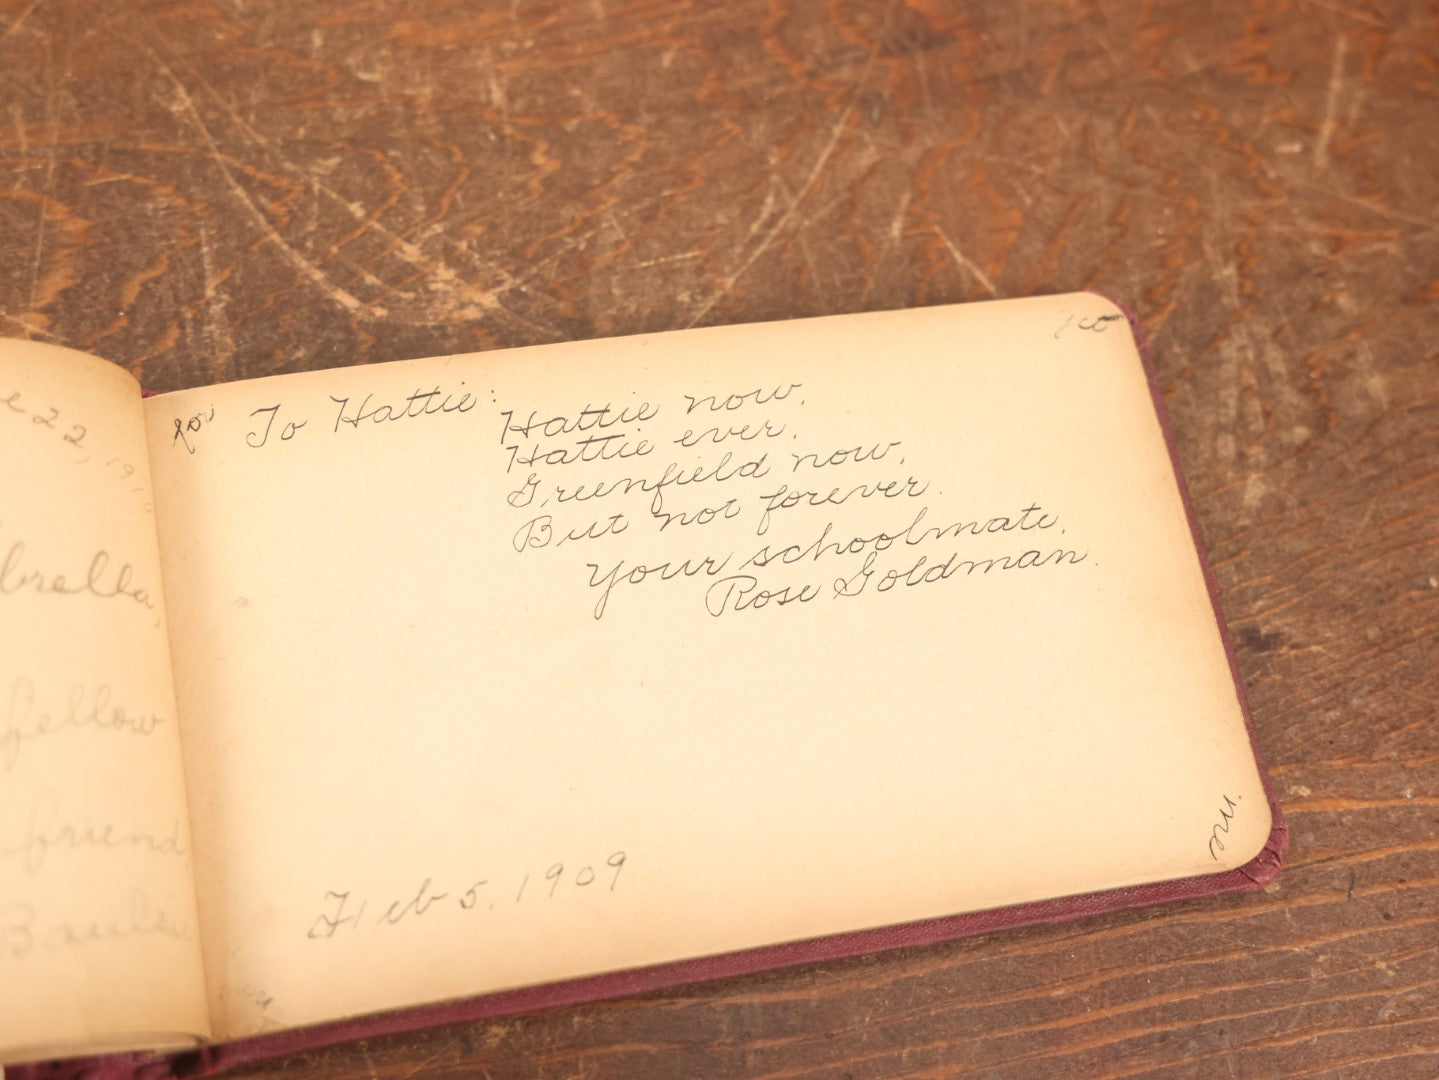 22, 1910
fellow
friend
for
To Hattie:
Hattie now,
Hattie ever.
Greenfield now,
But not forever.
Your schoolmate,
Rose Goldman.
Feb 5, 1909
me